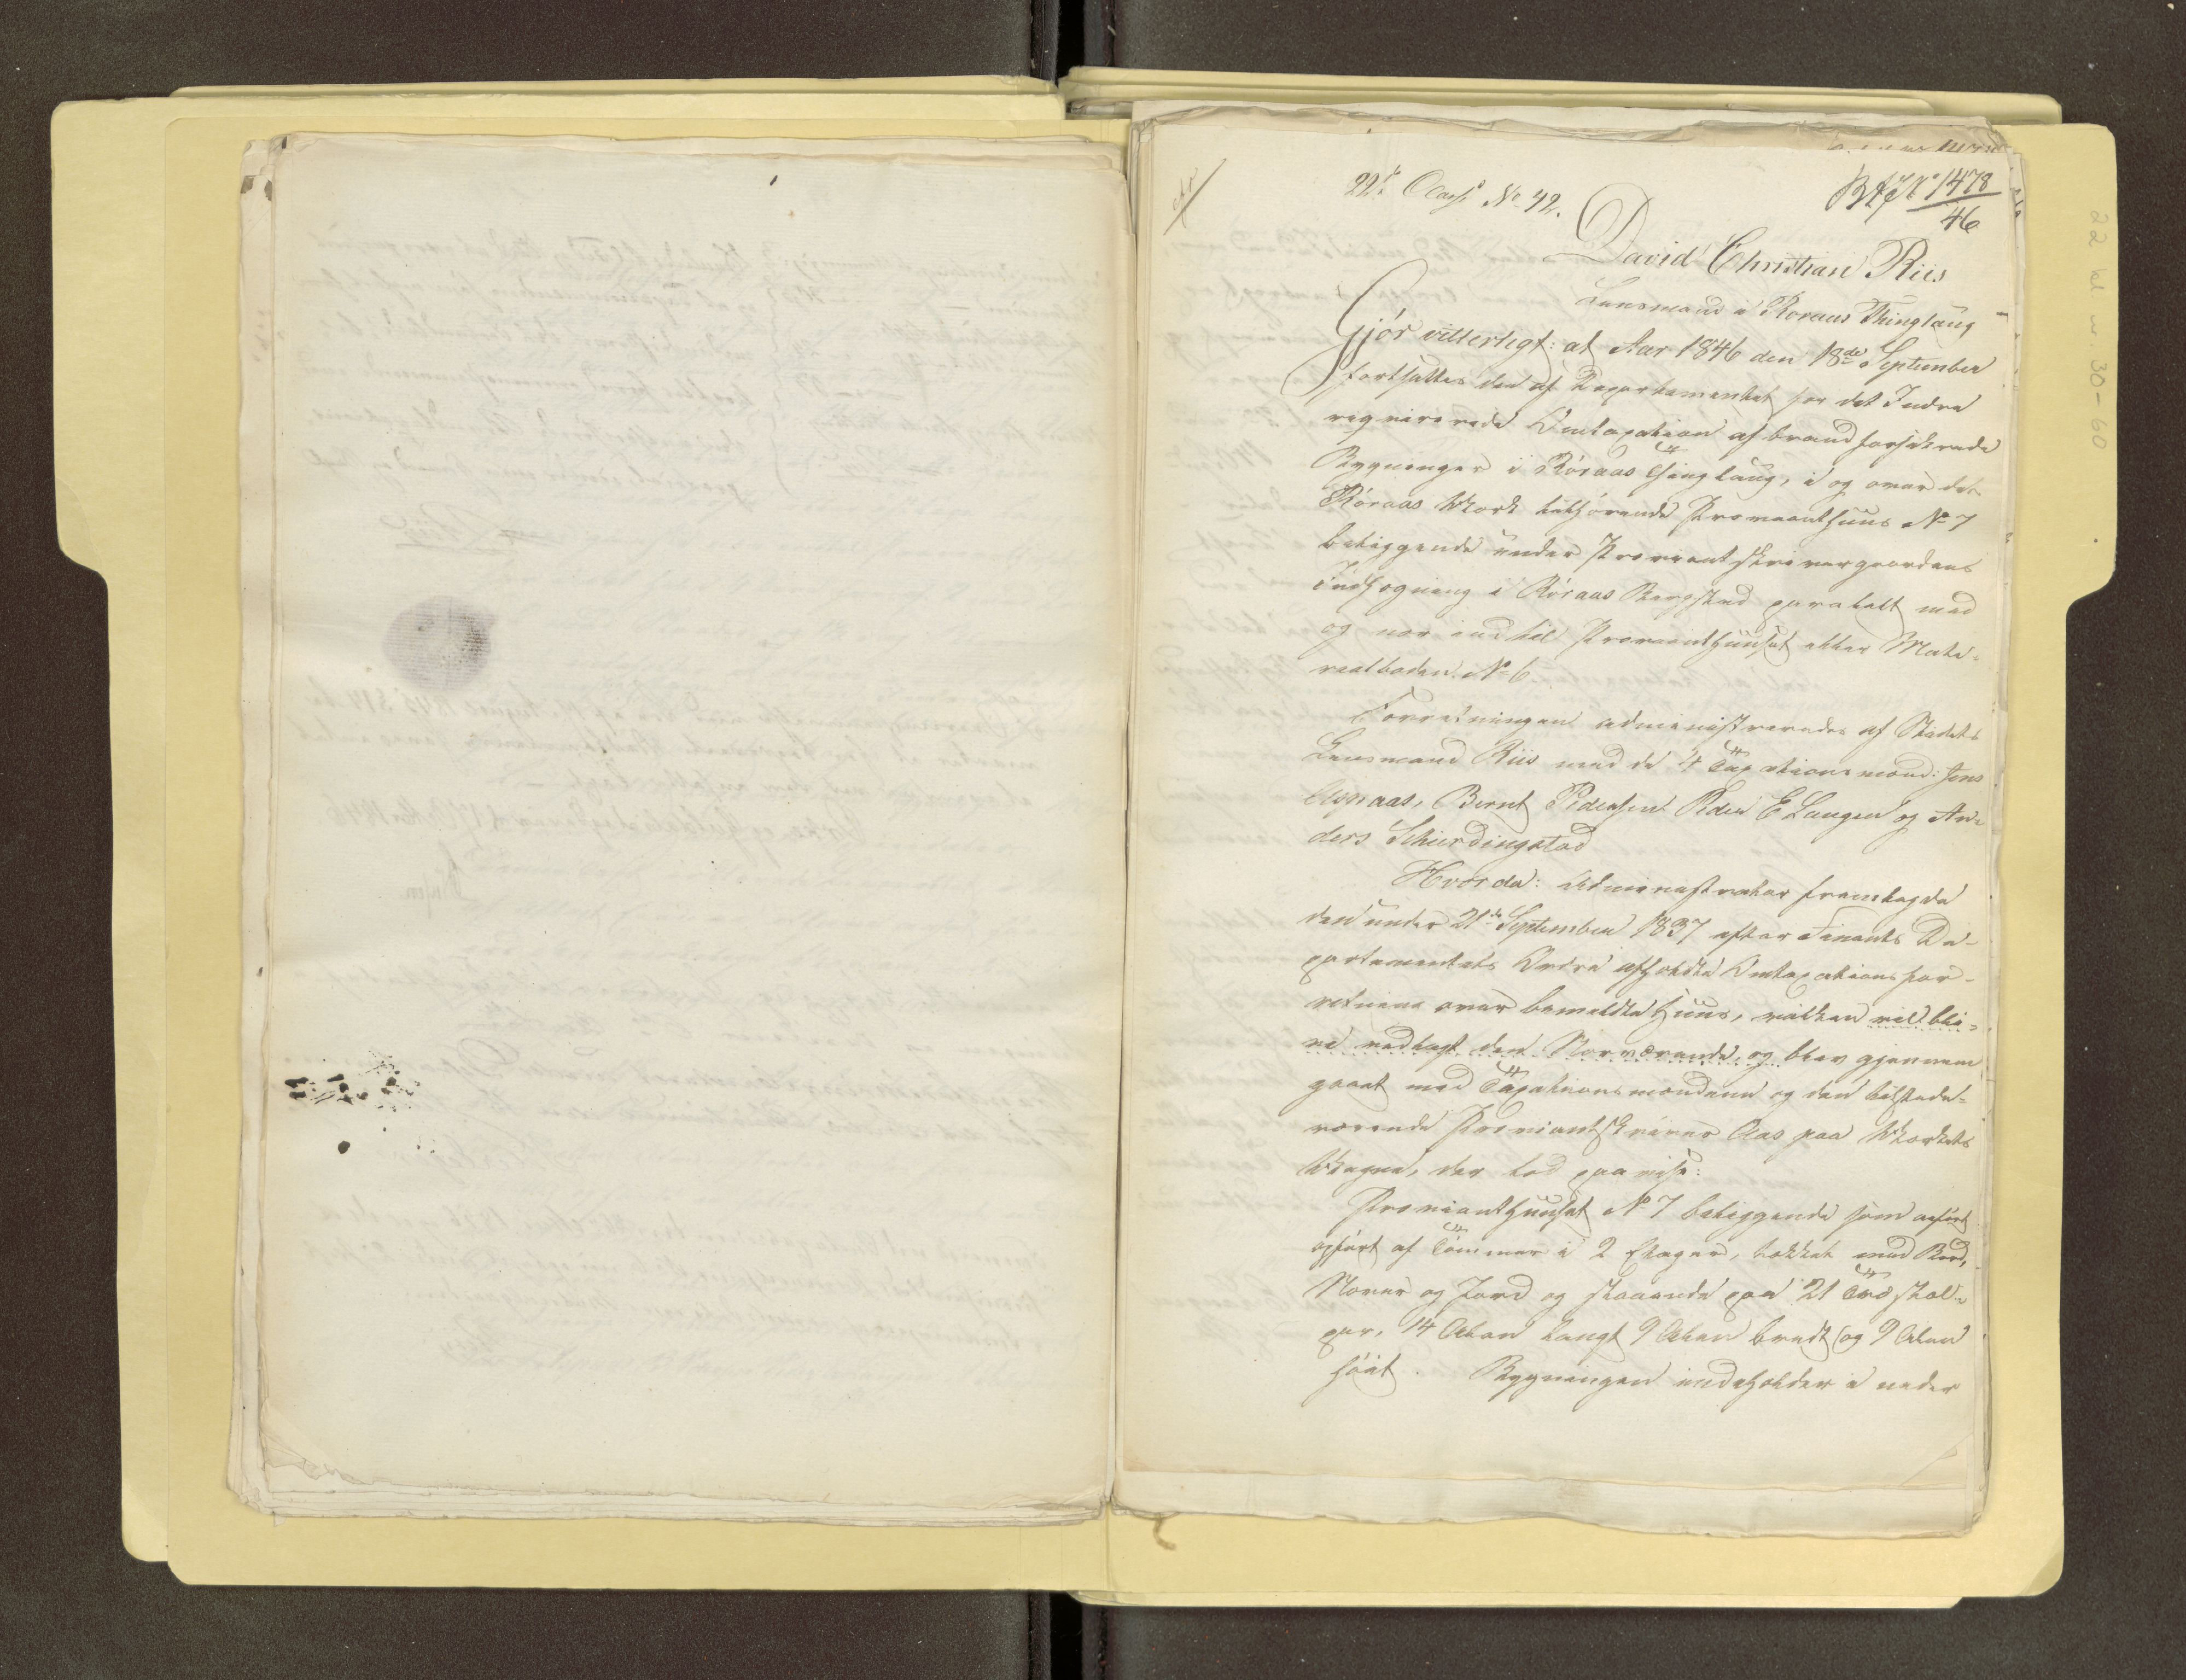 22de Class No 42.
Bf J No 1478
46
David Christian Riis
Lensmand i Röraas Thinglaug
Gjör vitterligt: at Aar 1846 den 18de September
fortsattes den af Departementet for det Indre
reqvirerede Omtaxation af brandforsikrede
Bygninger i Röraas Thinglaug, i og over det
Röraas Værk tilhörende Provianthuus No 7
beliggende under Proviantskrivergaardens
Indhegning i Röraas Bergstad paralelt med
og nær ind til Provianthuuset eller Mate-
rialboden No 6
Forretningen administreredes af Stedets
Lensmand Riis med de 4 Taxationsmænd: Jens
Aspaas, Bernt Pedersen, Peder E Langen og An-
ders Schierdingstad
Hvorda: Administrator fremlagde
den under 21de September 1837 efter Finants De-
partementets Ordre afholdte Omtaxationsfor-
retning over bemeldte Huus, vilken vil bli-
ve vedlagt den Nærværende, og blev gjennem
gaaet med Taxationsmændene og den tilstede-
værende Proviantskriver Aas paa Værkets
Vægne, der lod paavise:
Provianthuuset No 7 beliggende som anfört
opfört af Tömmer i 2 Etager, tækket med Bord,
Næver og Jord og staaende paa 21 Træstol-
per, 14 Alen langt 9 Alen bredt og 9 Alen
höit. Bygningen indeholder i neder
22 kl. nr. 30-60